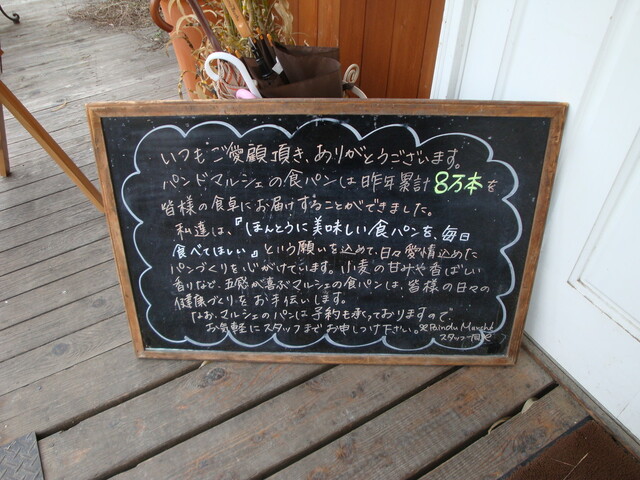 いつもご愛顧頂き、ありがとうございます。
パンドマルシェの食パンは昨年累計8万本を
皆様の食卓にお届けすることができました。
私達は、『ほんとうに美味しい食パンを、毎日
食べてほしい』という願いを込めて、日々愛情込めた
パンづくりを心がけています。小麦の甘みや香ばしい
香りなど、五感が喜ぶマルシェの食パンは、皆様の日々の
健康づくりをお手伝いします。
なお、マルシェのパンは予約も承っておりますので、
お気軽にスタッフまでお申しつけ下さい。Paindu Marché
スタッフ一同